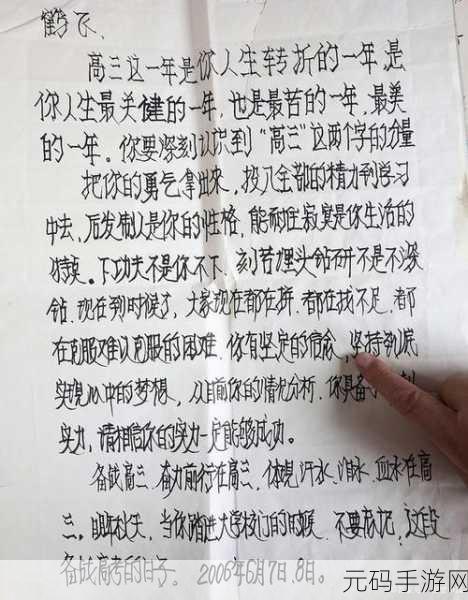 鹤飞、
高三这一年是你人生转折的一年,是
你人生最关健的一年,也是最苦的一年,最美
的一年。你要深刻认识到“高三”这两个字的分量
把你的勇气拿出来,投入全部的精力到学习
中去、后发制人是你的性格,能耐住寂寞是你生活的
特误。下功夫不是你不下、刻苦埋头钻研不是不深
钻、现在到时候了,大家现在都在拼、都在找不足、都
在克服难以克服的困难、你有坚定的信念,坚持到底
实现心中的梦想,从目前你的情况分析、你具备
实力,请相信你的实力一定能够成功。
备战高三、奋力前行在高三、体现汗水、泪水、血水在高
三。明年秋天、当你踏进大学校门的时候、不要忘记,这段
备战高考的日子。2006年6月7日.8日。
元码手游网